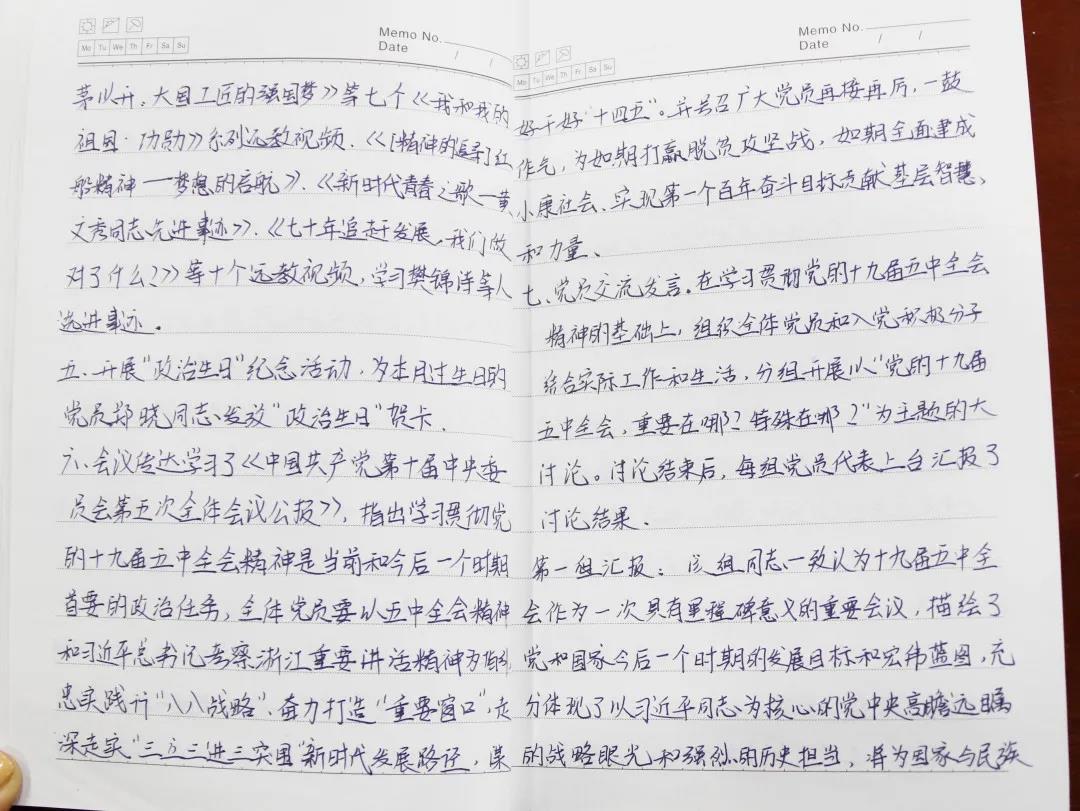 Mo Tu We Th Fr Sa Su
Memo No.
Date / /
茅以升：大国工匠的强国梦》等七个《我和我的
祖国·功勋》系列远教视频、《[精神的追寻]红
船精神——梦想的启航》、《新时代青春之歌—黄
文秀同志先进事迹》、《七十年追赶发展，我们做
对了什么？》等十个远教视频，学习樊锦诗等人
先进事迹。
五、开展“政治生日”纪念活动，为本月过生日的
党员郑晓同志发放“政治生日”贺卡。
六、会议传达学习了《中国共产党第十届中央委
员会第五次全体会议公报》，指出学习贯彻党
的十九届五中全会精神是当前和今后一个时期
首要的政治任务，全体党员要以五中全会精神
和习近平总书记考察浙江重要讲话精神为指引
忠实践行“八八战略”、奋力打造“重要窗口”，走
深走实“三立三进三突围”新时代发展路径，谋
Mo Tu We Th Fr Sa Su
Memo No.
Date / /
好干好“十四五”。并号召广大党员再接再厉，一鼓
作气，为如期打赢脱贫攻坚战，如期全面建成
小康社会、实现第一个百年奋斗目标贡献基层智慧、
和力量、
七、党员交流发言。在学习贯彻党的十九届五中全会
精神的基础上，组织全体党员和入党积极分子
结合实际工作和生活，分组开展以“党的十九届
五中全会，重要在哪？特殊在哪？”为主题的大
讨论。讨论结束后，每组党员代表上台汇报了
讨论结果、
第一组汇报：该组同志一致认为十九届五中全
会作为一次具有里程碑意义的重要会议，描绘了
党和国家今后一个时期的发展目标和宏伟蓝图，充
分体现了以习近平同志为核心的党中央高瞻远瞩
的战略眼光和强烈的历史担当，将为国家与民族